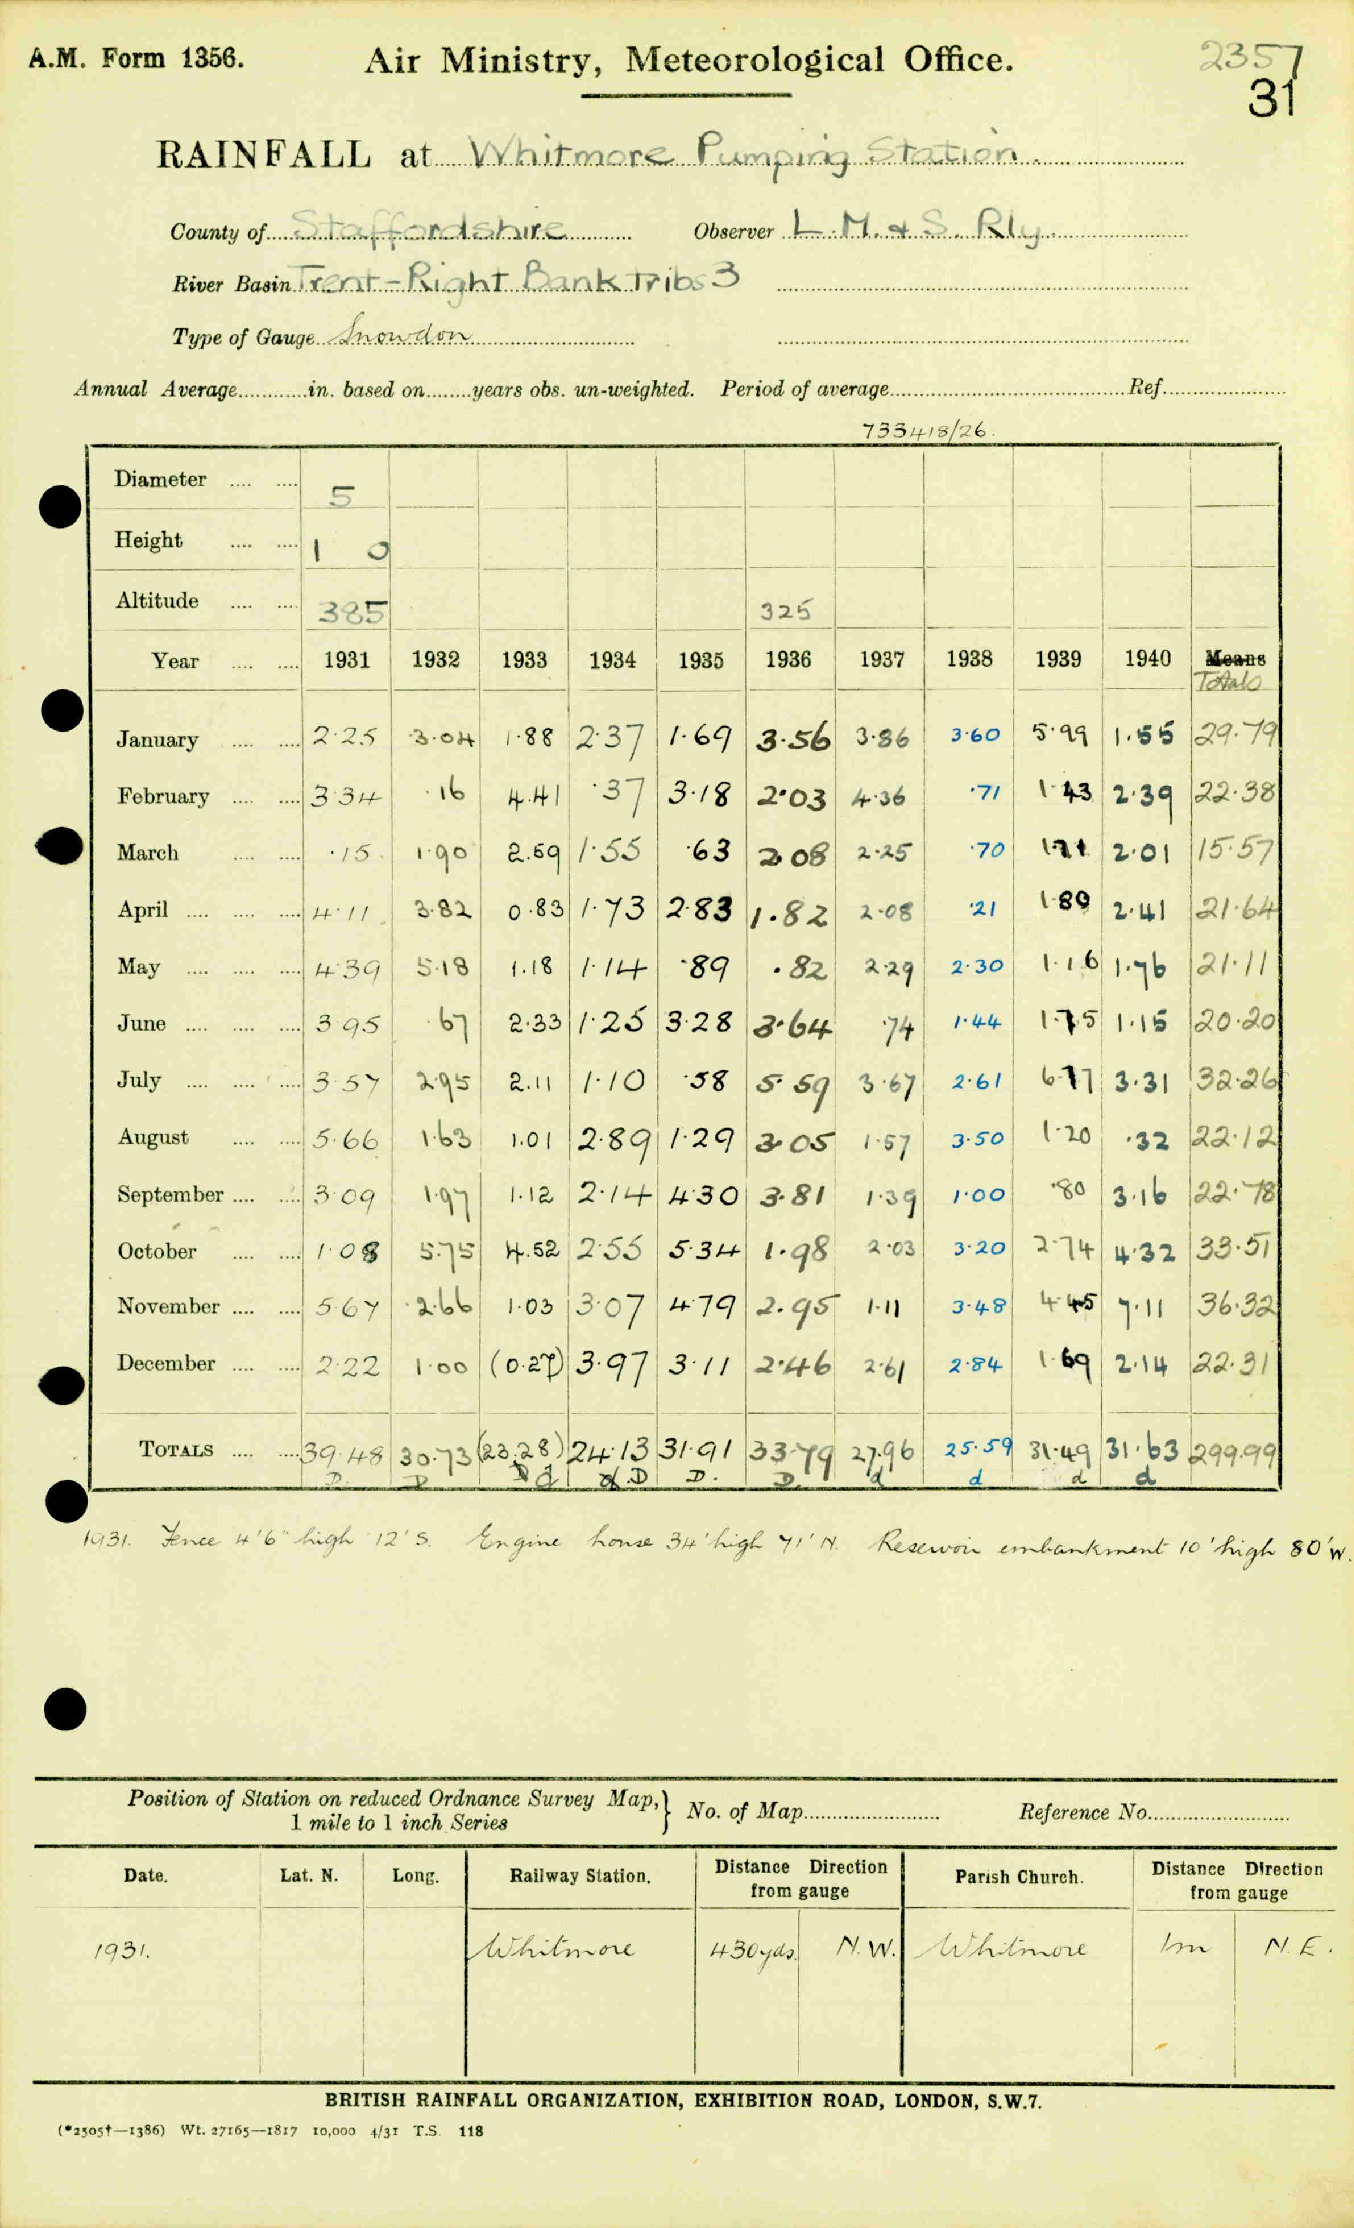 A.M. Form 1356.
Air Ministry, Meteorological Office.
2357
31
RAINFALL at Whitmore Pumping Station.
County of Staffordshire Observer L.M. & S. Rly.
River Basin Trent-Right Bank Tribs 3
Type of Gauge Snowdon
Annual Average in. based on years obs. un-weighted. Period of average Ref.
733418/26.
Diameter 5
Height 1 0
Altitude 385 325
Year 1931 1932 1933 1934 1935 1936 1937 1938 1939 1940 Means
Totals
January 2.25 3.04 1.88 2.37 1.69 3.56 3.86 3.60 5.99 1.55 29.79
February 3.34 .16 4.41 .37 3.18 2.03 4.36 .71 1.43 2.39 22.38
March .15 1.90 2.59 1.55 .63 2.08 2.25 .70 1.71 2.01 15.57
April 4.11 3.82 0.83 1.73 2.83 1.82 2.08 .21 1.80 2.41 21.64
May 4.39 5.18 1.18 1.14 .89 .82 2.29 2.30 1.16 1.76 21.11
June 3.95 .67 2.33 1.25 3.28 3.64 .74 1.44 1.75 1.15 20.20
July 3.57 2.95 2.11 1.10 .58 5.59 3.67 2.61 6.77 3.31 32.26
August 5.66 1.63 1.01 2.89 1.29 3.05 1.57 3.50 1.20 .32 22.12
September 3.09 1.97 1.12 2.14 4.30 3.81 1.39 1.00 .80 3.16 22.78
October 1.08 5.75 4.52 2.55 5.34 1.98 2.03 3.20 2.74 4.32 33.51
November 5.67 2.66 1.03 3.07 4.79 2.95 1.11 3.48 4.45 7.11 36.32
December 2.22 1.00 (0.27) 3.97 3.11 2.46 2.61 2.84 1.69 2.14 22.31
TOTALS 39.48 30.73 (23.28) 24.13 31.91 33.79 27.96 25.59 31.49 31.63 299.99
D. D D d d D D. D. d d d d
1931. Fence 4'6" high 12' S. Engine house 34' high 71' N. Reservoir embankment 10' high 80' W.
Position of Station on reduced Ordnance Survey Map, } No. of Map Reference No.
1 mile to 1 inch Series
Date. Lat. N. Long. Railway Station. Distance Direction from gauge Parish Church. Distance Direction from gauge
1931. Whitmore 430yds. N.W. Whitmore 1m N.E.
BRITISH RAINFALL ORGANIZATION, EXHIBITION ROAD, LONDON, S.W.7.
(*2505†—1386) Wt. 27165—1817 10,000 4/31 T.S. 118